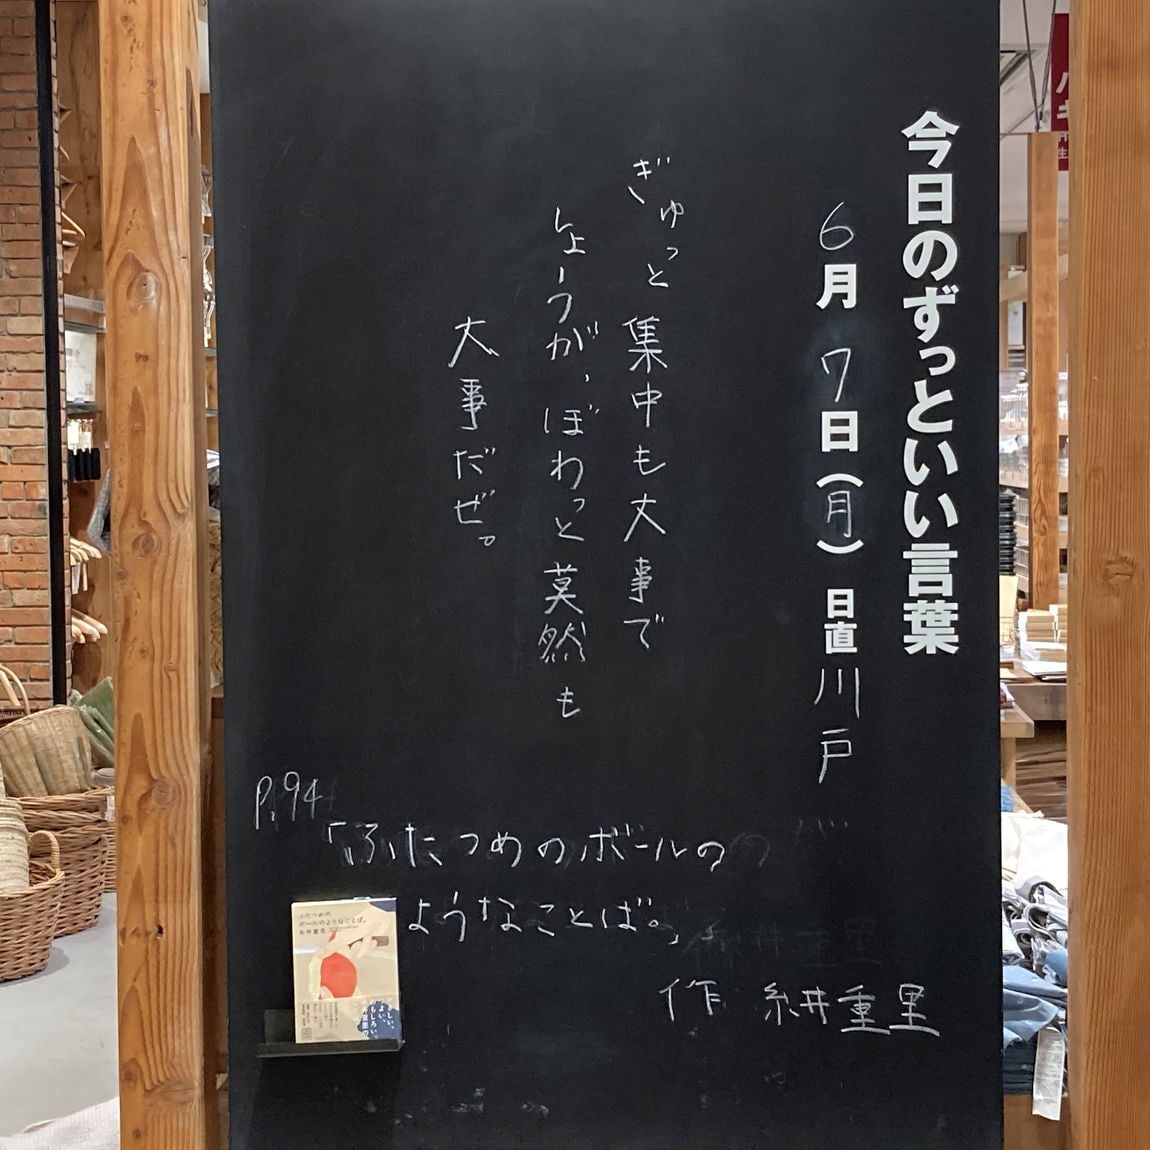 今日のずっといい言葉
6月7日(月) 日直 川戸
ぎゅっと集中も大事で
しょうが、ぼわっと莫然も
大事だぜ。
P.94
「ふたつめのボールの
ような
ことば。」
作 糸井重里
ふたつめの
ボールのようなことば。
糸井重里